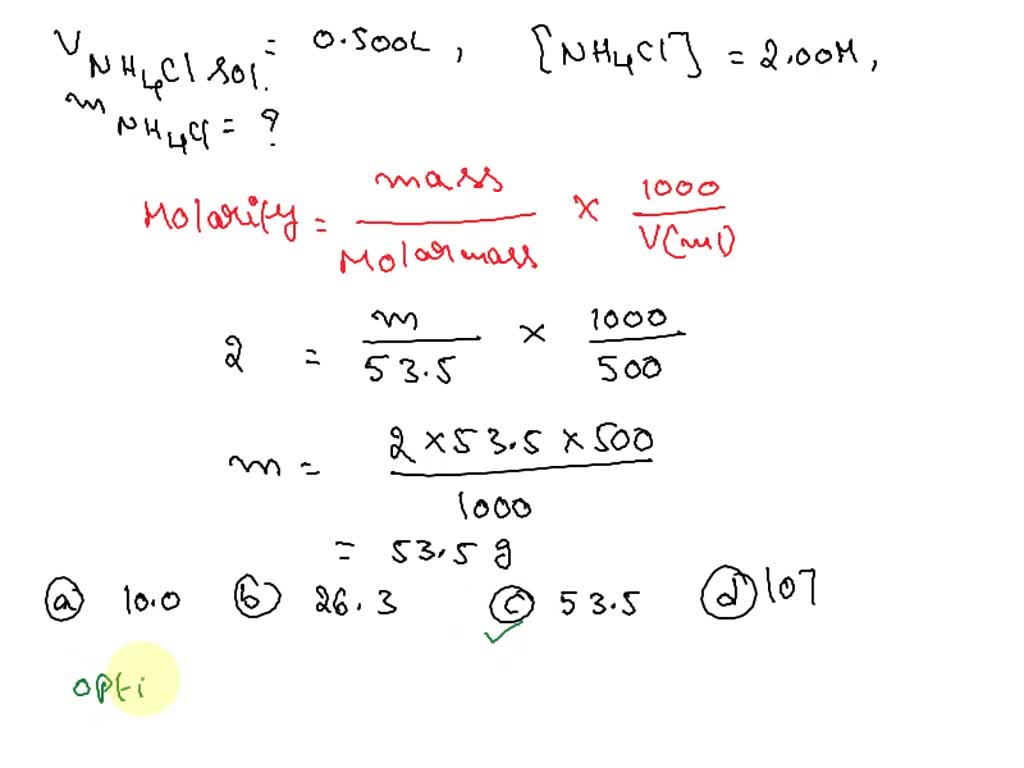 V NH4Cl sol. = 0.500L, [NH4Cl] = 2.00M,
m NH4Cl = ?
Molarity = mass / Molarmass × 1000 / V(ml)
2 = m / 53.5 × 1000 / 500
m = 2 × 53.5 × 500 / 1000
= 53.5 g
(a) 10.0 (b) 26.3 (c) 53.5 (d) 107
✓
opti